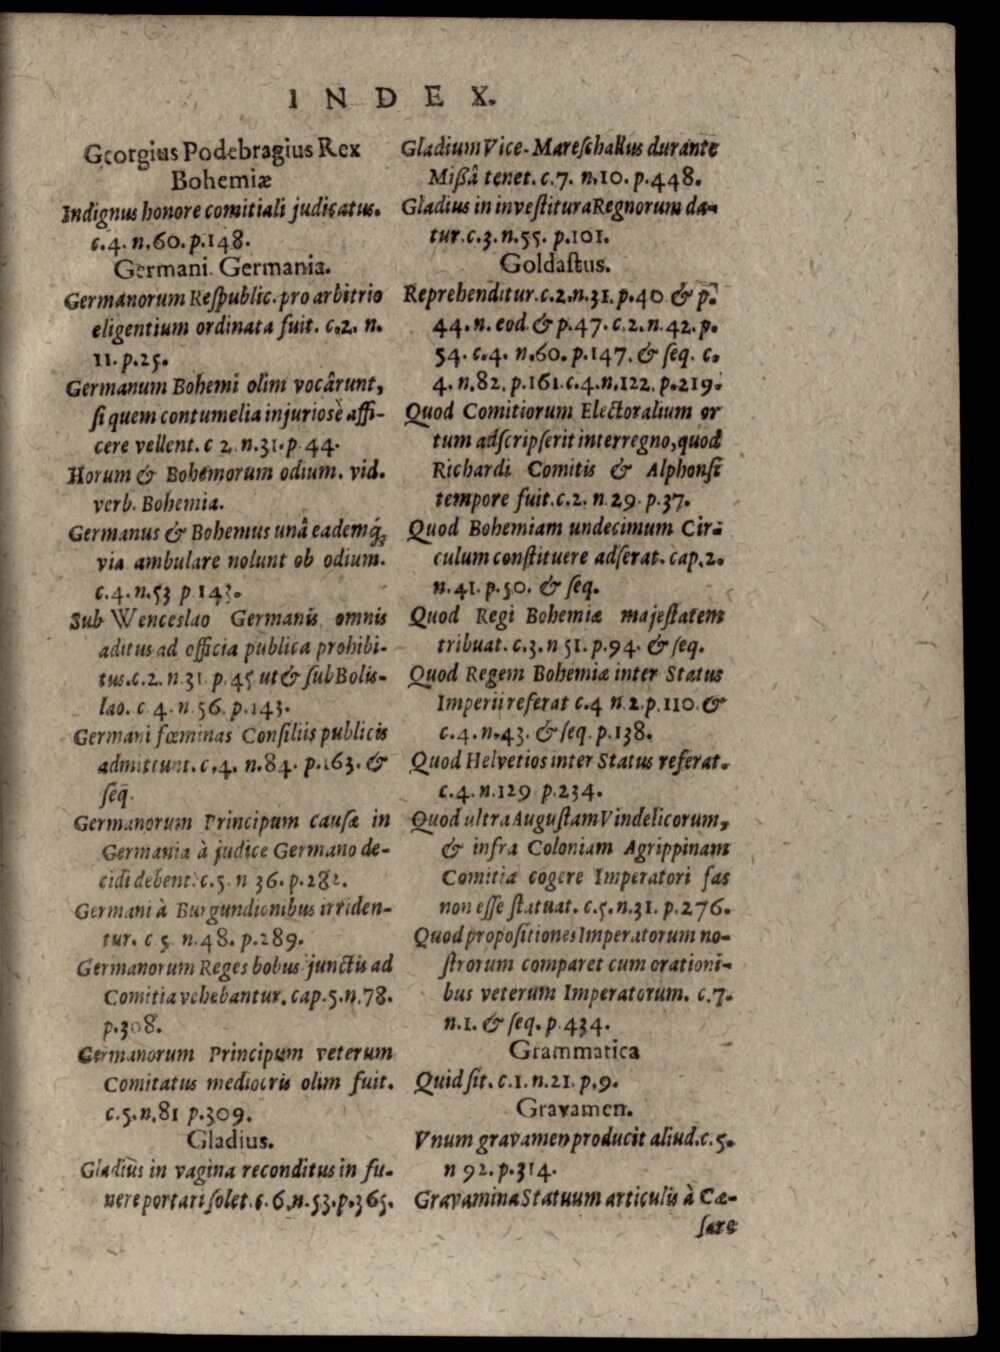 INDEX.
Georgius Podebragius Rex
Bohemiæ
Indignus honore comitiali judicatus.
c.4. n.60. p.148.
Germani. Germania.
Germanorum Reſpublic. pro arbitrio
eligentium ordinata fuit. c.2. n.
11. p.25.
Germanum Bohemi olim vocârunt,
ſi quem contumelia injuriosè affi-
cere vellent. c 2. n.31. p 44.
Horum & Bohemorum odium. vid.
verb. Bohemia.
Germanus & Bohemus unâ eademq́;
via ambulare nolunt ob odium.
c.4. n.53 p 143.
Sub Wenceslao Germanis omnis
aditus ad officia publica prohibi-
tus.c.2. n.31 p.45 ut & ſub Bolis-
lao. c 4. n 56. p.143.
Germani fœminas Conſiliis publicis
admittunt. c.4. n.84. p.163. &
ſeq.
Germanorum Principum cauſæ in
Germania à judice Germano de-
cidi debent. c.5. n 36. p.282.
Germani à Burgundionibus irriden-
tur. c 5. n.48. p.289.
Germanorum Reges bobus junctis ad
Comitia vehebantur. cap.5.n.78.
p.308.
Germanorum Principum veterum
Comitatus mediocris olim fuit.
c.5.n.81 p.309.
Gladius.
Gladius in vagina reconditus in fu-
nere portari ſolet. c.6.n.53.p.365.
Gladium Vice-Mareſchallus durante
Miſſâ tenet. c.7. n.10. p.448.
Gladius in inveſtitura Regnorum da-
tur. c.3. n.55. p.101.
Goldaſtus.
Reprehenditur. c.2.n.31. p.40 & p.
44. n. eod. & p.47. c.2. n.42. p.
54. c.4. n.60. p.147. & ſeq. c.
4. n.82. p.161.c.4.n.122. p.219.
Quod Comitiorum Electoralium or
tum adſcripſerit interregno, quod
Richardi Comitis & Alphonſi
tempore fuit. c.2. n.29. p.37.
Quod Bohemiam undecimum Cir-
culum conſtituere adſerat. cap.2.
n.41. p.50. & ſeq.
Quod Regi Bohemiæ majeſtatem
tribuat. c.3. n 51. p.94. & ſeq.
Quod Regem Bohemiæ inter Status
Imperii referat c.4 n.2.p.110.&
c.4.n.43. & ſeq. p.138.
Quod Helvetios inter Status referat.
c.4.n.129 p.234.
Quod ultra Auguſtam Vindelicorum,
& infra Coloniam Agrippinam
Comitia cogere Imperatori fas
non eſſe ſtatuat. c.5.n.31. p.276.
Quod propoſitiones Imperatorum no-
ſtrorum comparet cum orationi-
bus veterum Imperatorum. c.7.
n.1. & ſeq. p 434.
Grammatica
Quid ſit. c.1. n.21. p.9.
Gravamen.
Vnum gravamen producit aliud.c.5.
n 92. p.314.
Gravamina Statuum articulis à Cæ-
ſare